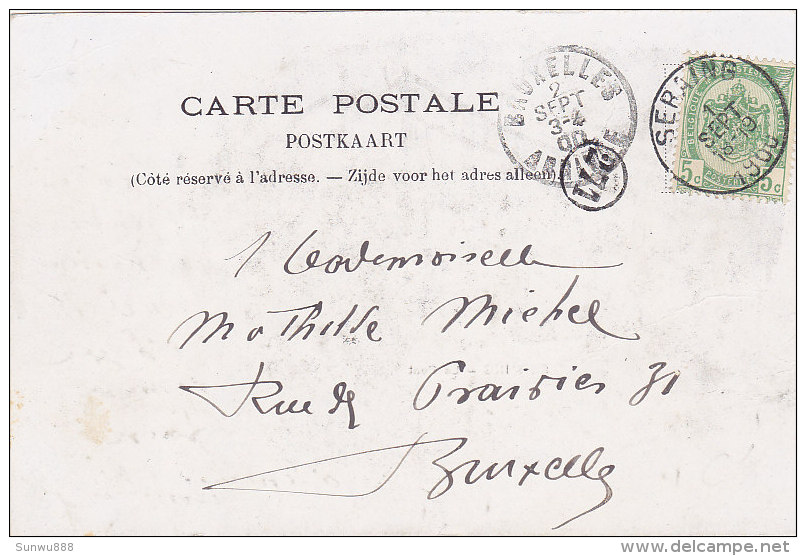 CARTE POSTALE
POSTKAART
(Côté réservé à l'adresse. — Zijde voor het adres alleen).
BRUXELLES
2
SEPT
3-4
00
SERAING
1
SEPT
1900
5c 5c
POSTES
Mademoiselle
Mathilde Michel
Rue des Prairies 31
Bruxelles
Sunwu888
delcampe.net